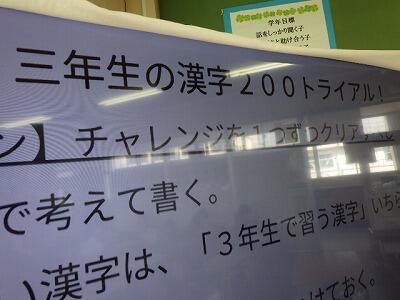 学年目標
話をしっかり聞く子
助け合う子
三年生の漢字200トライアル!
ン】チャレンジを1つずつクリア
で考えて書く。
漢字は、「3年生で習う漢字」いちら
けておく。